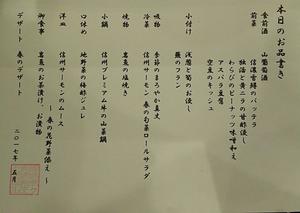 本日のお品書き
食前酒　山葡萄酒
前菜　信濃鱒のバッテラ
独活と黄ニラの甘酢浸し
わらびのピーナッツ味噌和え
アスパラ豆腐
空豆のキッシュ
小付け　浅蜊と筍のお浸し
鰻のフラン
吸物　季節のまろやか真丈
冷菜　信州サーモン 春の旬菜ロールサラダ
焼物　岩魚の塩焼き
小鍋　信州プレミアム牛の山菜鍋
口休め　地野菜の梅酢ジュレ
洋皿　信州サーモンのムース
～春の花野菜添え～
御食事　岩魚のお茶漬け、お漬物
デザート　春のデザート
二〇一七年　五月